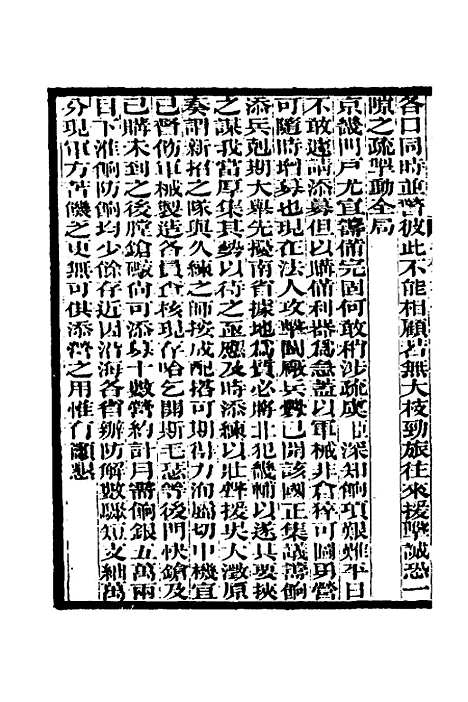 各口同時並警彼此不能相顧若無大枝勁旅往來援擊誠恐一
隙之疏牽動全局
京畿門戶尤宜籌備完固何敢稍涉疏虞臣深知餉項艱難平日
不敢遽請添募但以購備利器為急蓋以軍械非倉猝可圖勇營
可隨時增募也現在法人攻擊閩廠兵釁已開該國正集議籌餉
添兵剋期大舉先擾南省據地為質必將北犯畿輔以遂其要挾
之謀我當厚集其勢以待之亟應及時添練以壯聲援吳大澂原
奏謂新招之隊與久練之師按成配搭可期得力洵屬切中機宜
已督飭軍械製造各員查核現存哈乞開斯毛瑟等後門快鎗及
已購未到之後膛鎗礮尚可添募十數營約計月需餉銀五萬兩
目下淮餉防餉均少餘存近因沿海各省辦防解數驟短支絀萬
分現軍方苦饑乏更無可供添營之用惟有籲懇